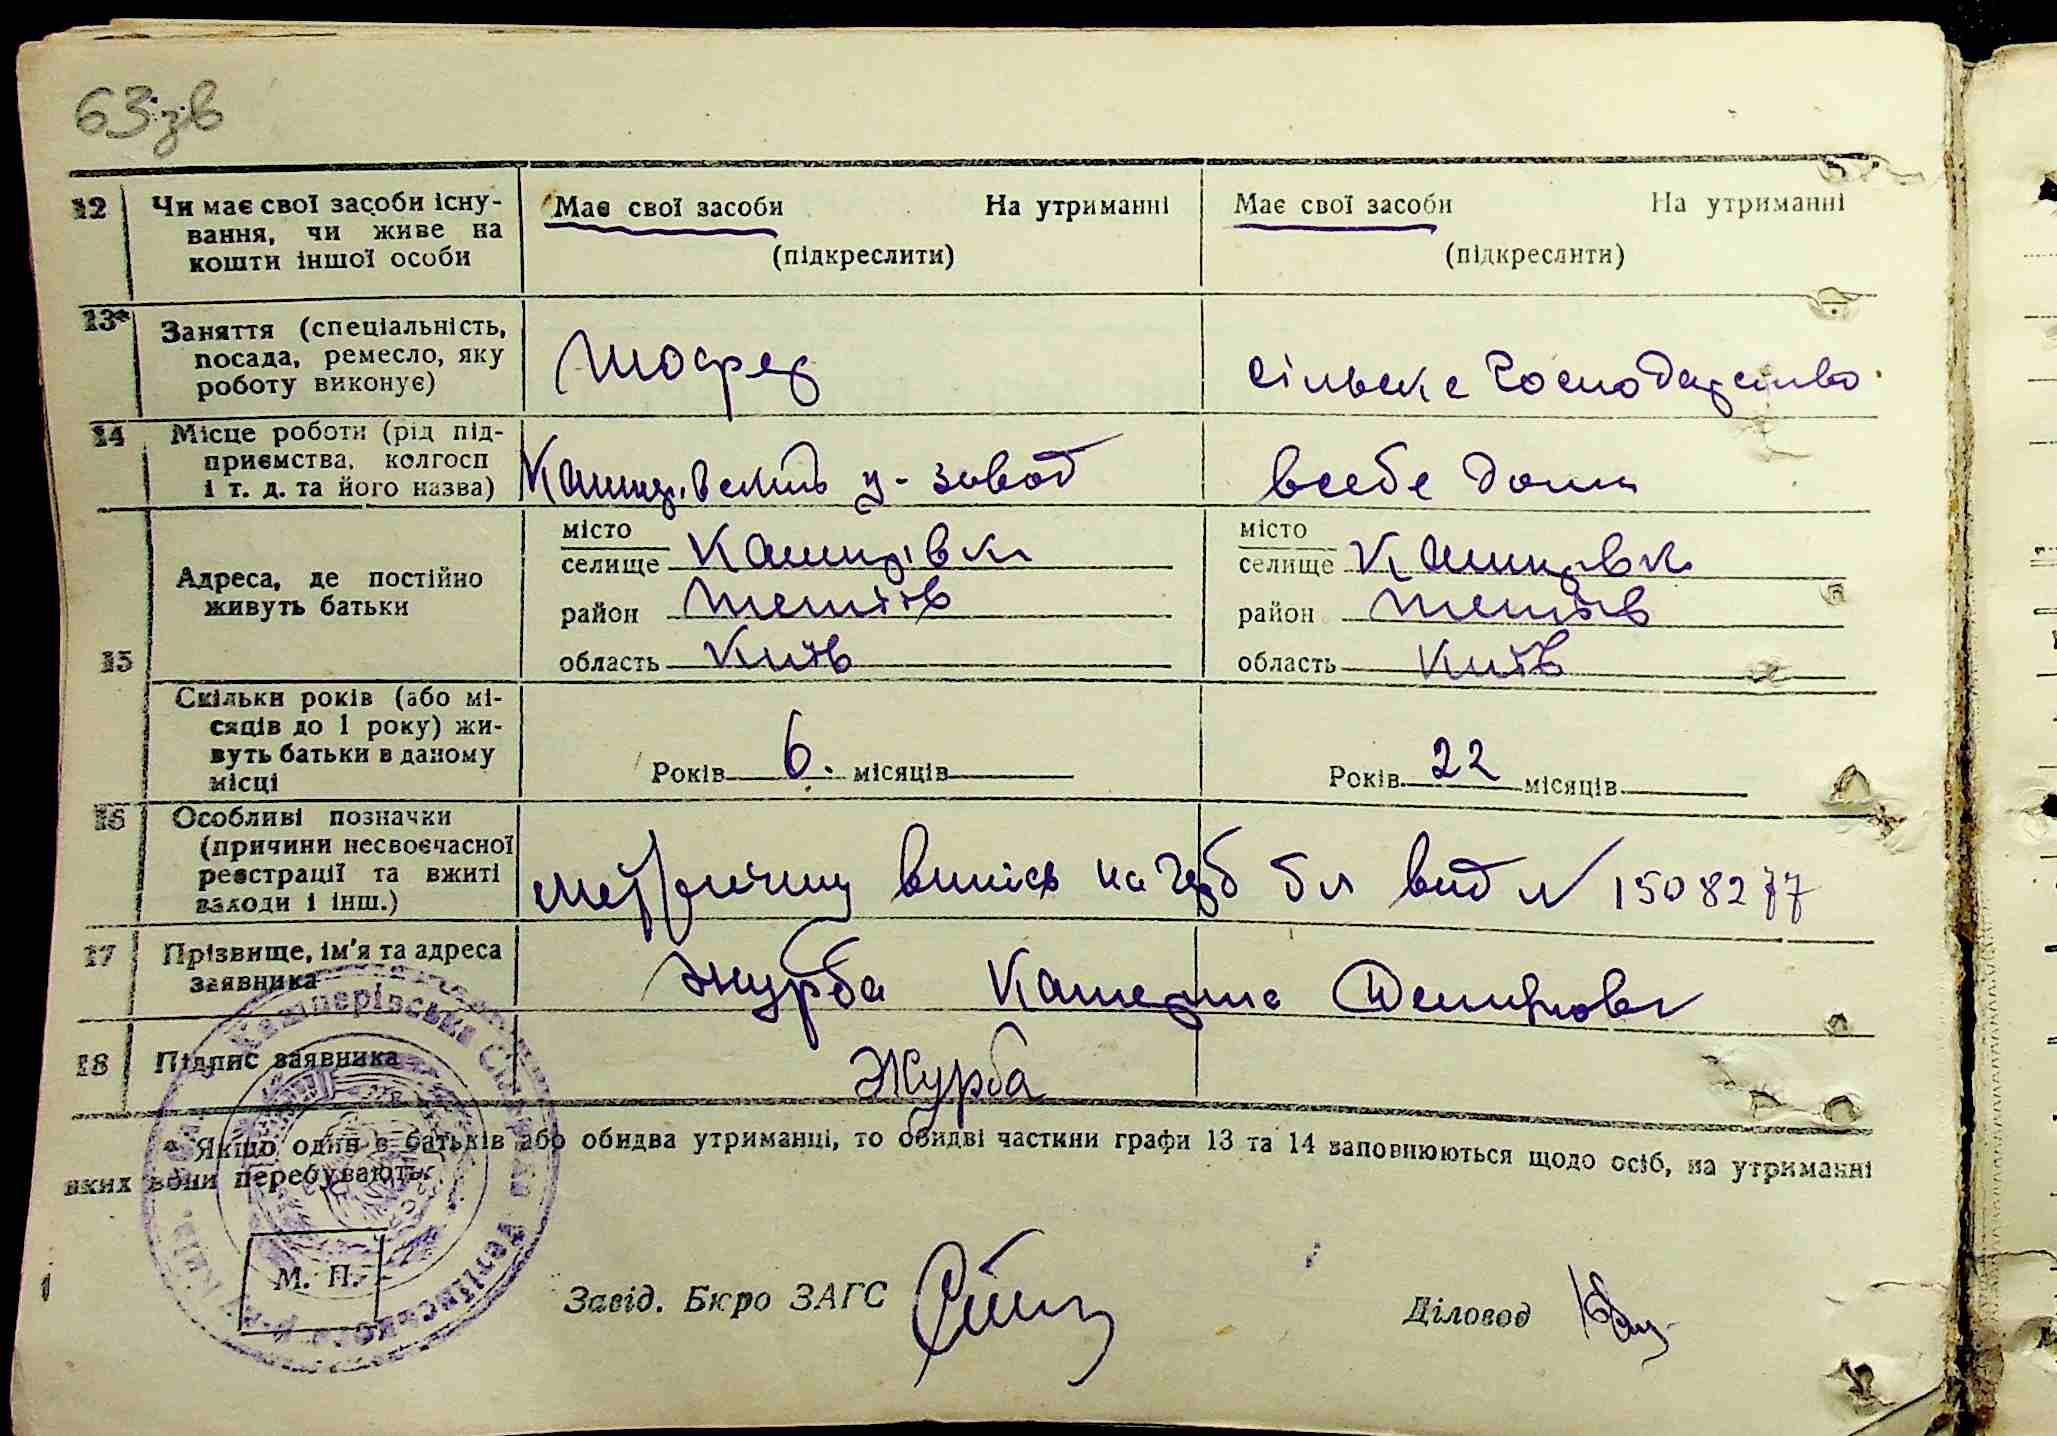 63зв
12 Чи має свої засоби існу-
вання, чи живе на
кошти іншої особи
Має свої засоби На утриманні
(підкреслити)
Має свої засоби На утриманні
(підкреслити)
13* Заняття (спеціальність,
посада, ремесло, яку
роботу виконує)
шофер
сільске господарство
14 Місце роботи (рід під-
приємства, колгосп
і т. д. та його назва)
ц-завод
всебе дома
15 Адреса, де постійно
живуть батьки
місто
селище Кашпірівка
район Тетіїв
область Київ
місто
селище Кашпіровка
район Тетіїв
область Київ
Скільки років (або мі-
сяців до 1 року) жи-
вуть батьки в даному
місці
Років 6. місяців
Років 22 місяців
16 Особливі позначки
(причини несвоєчасної
реєстрації та вжиті
заходи і інш.)
метричну випись на герб бл вид № 1508277
17 Прізвище, ім'я та адреса
заявника
Журба Катерина
18 Підпис заявника
Журба
* Якщо один з батьків або обидва утриманці, то обидві частини графи 13 та 14 заповнюються щодо осіб, на утриманні
яких вони перебувають.
Кашперівська Тетіївського р-ну Київ.
М. П.
Завід. Бюро ЗАГС
Діловод